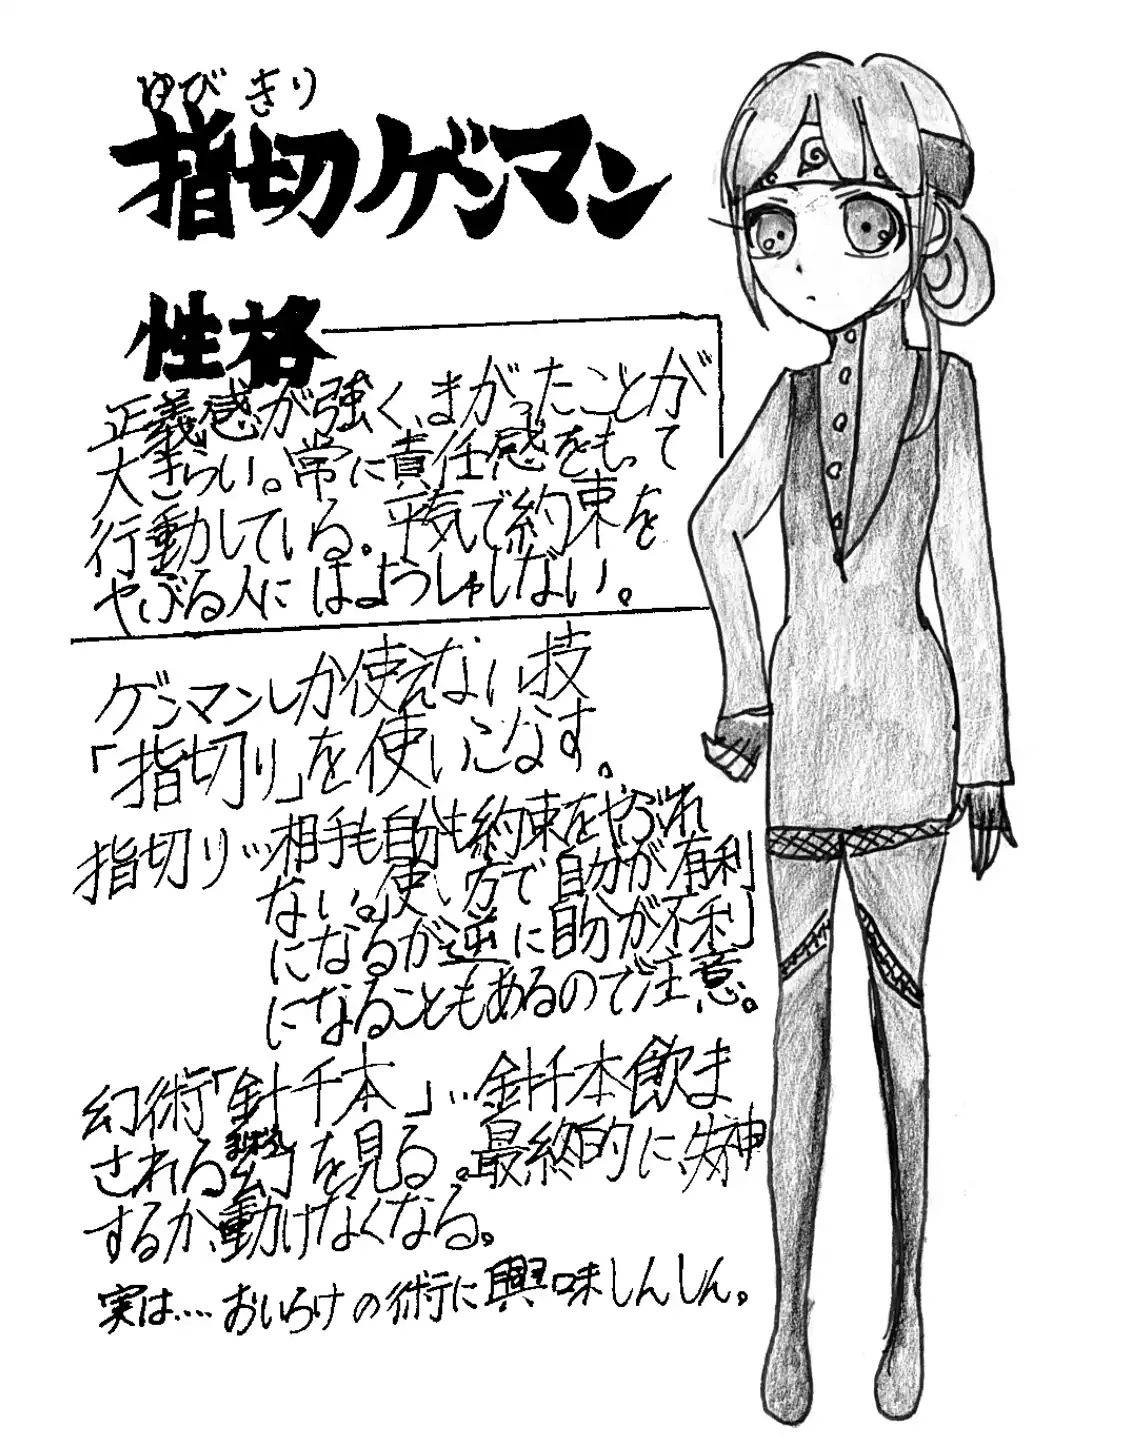 ゆびきり
指切ゲンマン
性格
正義感が強く、まがったことが
大きらい。常に責任感をもって
行動している。平気で約束を
やぶる人にはようしゃしない。
ゲンマンしか使えない技
「指切り」を使いこなす。
指切り…相手も自分も約束をやぶれ
ない。使い方で自分が有利
になるが逆に自分が不利
になることもあるので注意。
幻術「針千本」…針千本飲ま
される幻を見る。最終的に、失神
するか、動けなくなる。
実は…おいろけの術に興味しんしん。